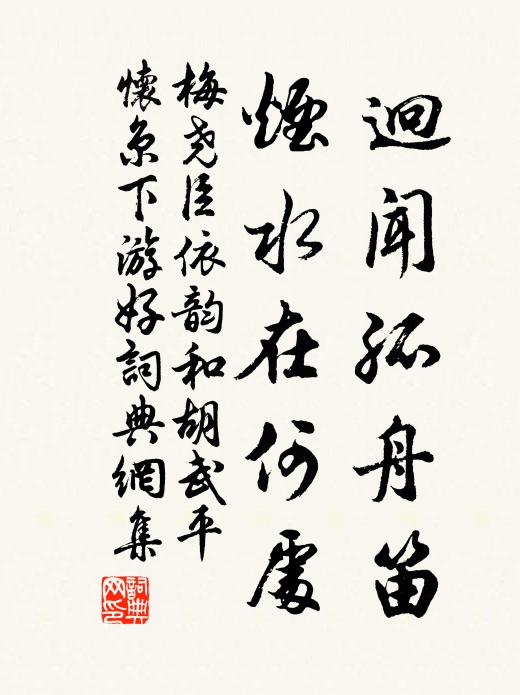 迥聞孤舟笛
煙水在何處
梅堯臣依韵和胡武平
懷京下游好詞典網集
詞典網印